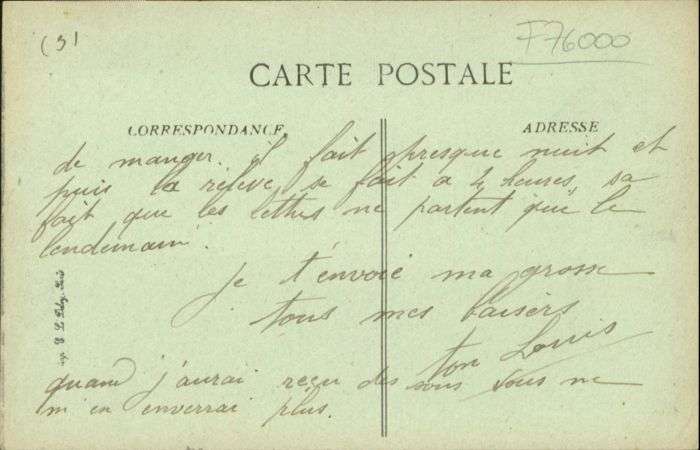 (3)
F76000
CARTE POSTALE
CORRESPONDANCE
ADRESSE
de manger. il fait presque nuit et
puis la relève se fait a 4 heures, sa
fait que les lettres ne partent que le
lendemain.
je t'envoie ma grosse
tous mes baisers
ton Louis
quand j'aurai reçu des sous vous ne
m'en enverrai plus.